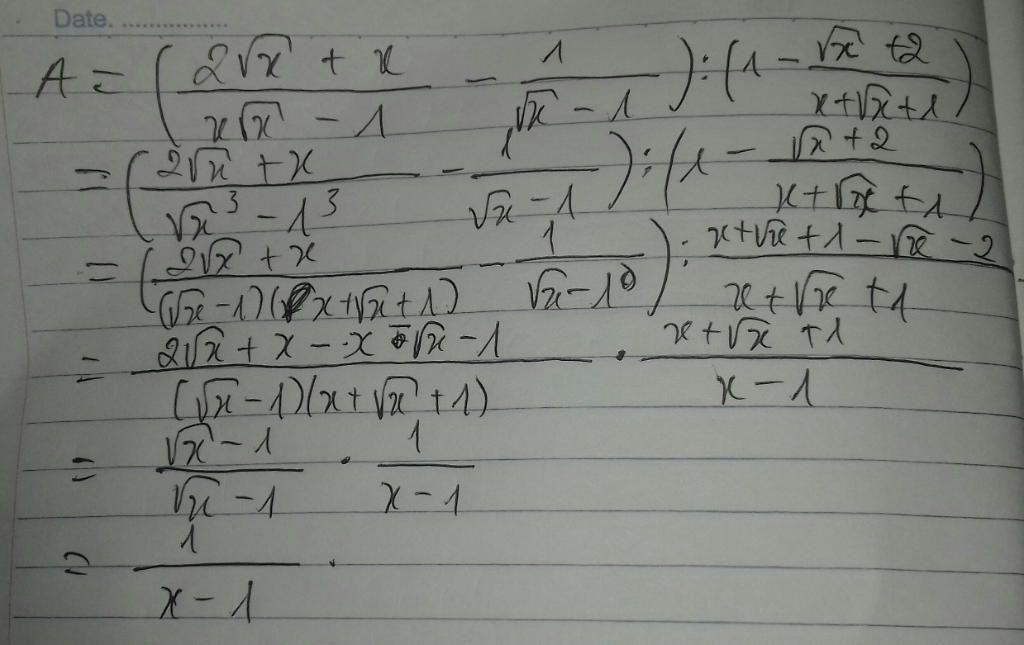 Date. ..................
A = ( (2√x + x)/(x√x - 1) - 1/(√x - 1) ) : ( 1 - (√x + 2)/(x + √x + 1) )
= ( (2√x + x)/(√x³ - 1³) - 1/(√x - 1) ) : ( 1 - (√x + 2)/(x + √x + 1) )
= ( (2√x + x)/((√x - 1)(x + √x + 1)) - 1/(√x - 1) ) : (x + √x + 1 - √x - 2)/(x + √x + 1)
= (2√x + x - x - √x - 1)/((√x - 1)(x + √x + 1)) . (x + √x + 1)/(x - 1)
= (√x - 1)/(√x - 1) . 1/(x - 1)
= 1/(x - 1) .